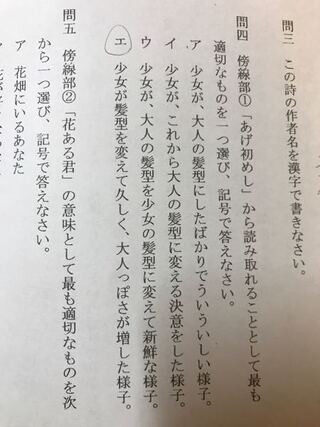 問三　この詩の作者名を漢字で書きなさい。
問四　傍線部①「あげ初めし」から読み取れることとして最も
適切なものを一つ選び、記号で答えなさい。
ア　少女が、大人の髪型にしたばかりでういういしい様子。
イ　少女が、これから大人の髪型に変える決意をした様子。
ウ　少女が、大人の髪型を少女の髪型に変えて新鮮な様子。
エ　少女が髪型を変えて久しく、大人っぽさが増した様子。
問五　傍線部②「花ある君」の意味として最も適切なものを次
から一つ選び、記号で答えなさい。
ア　花畑にいるあなた